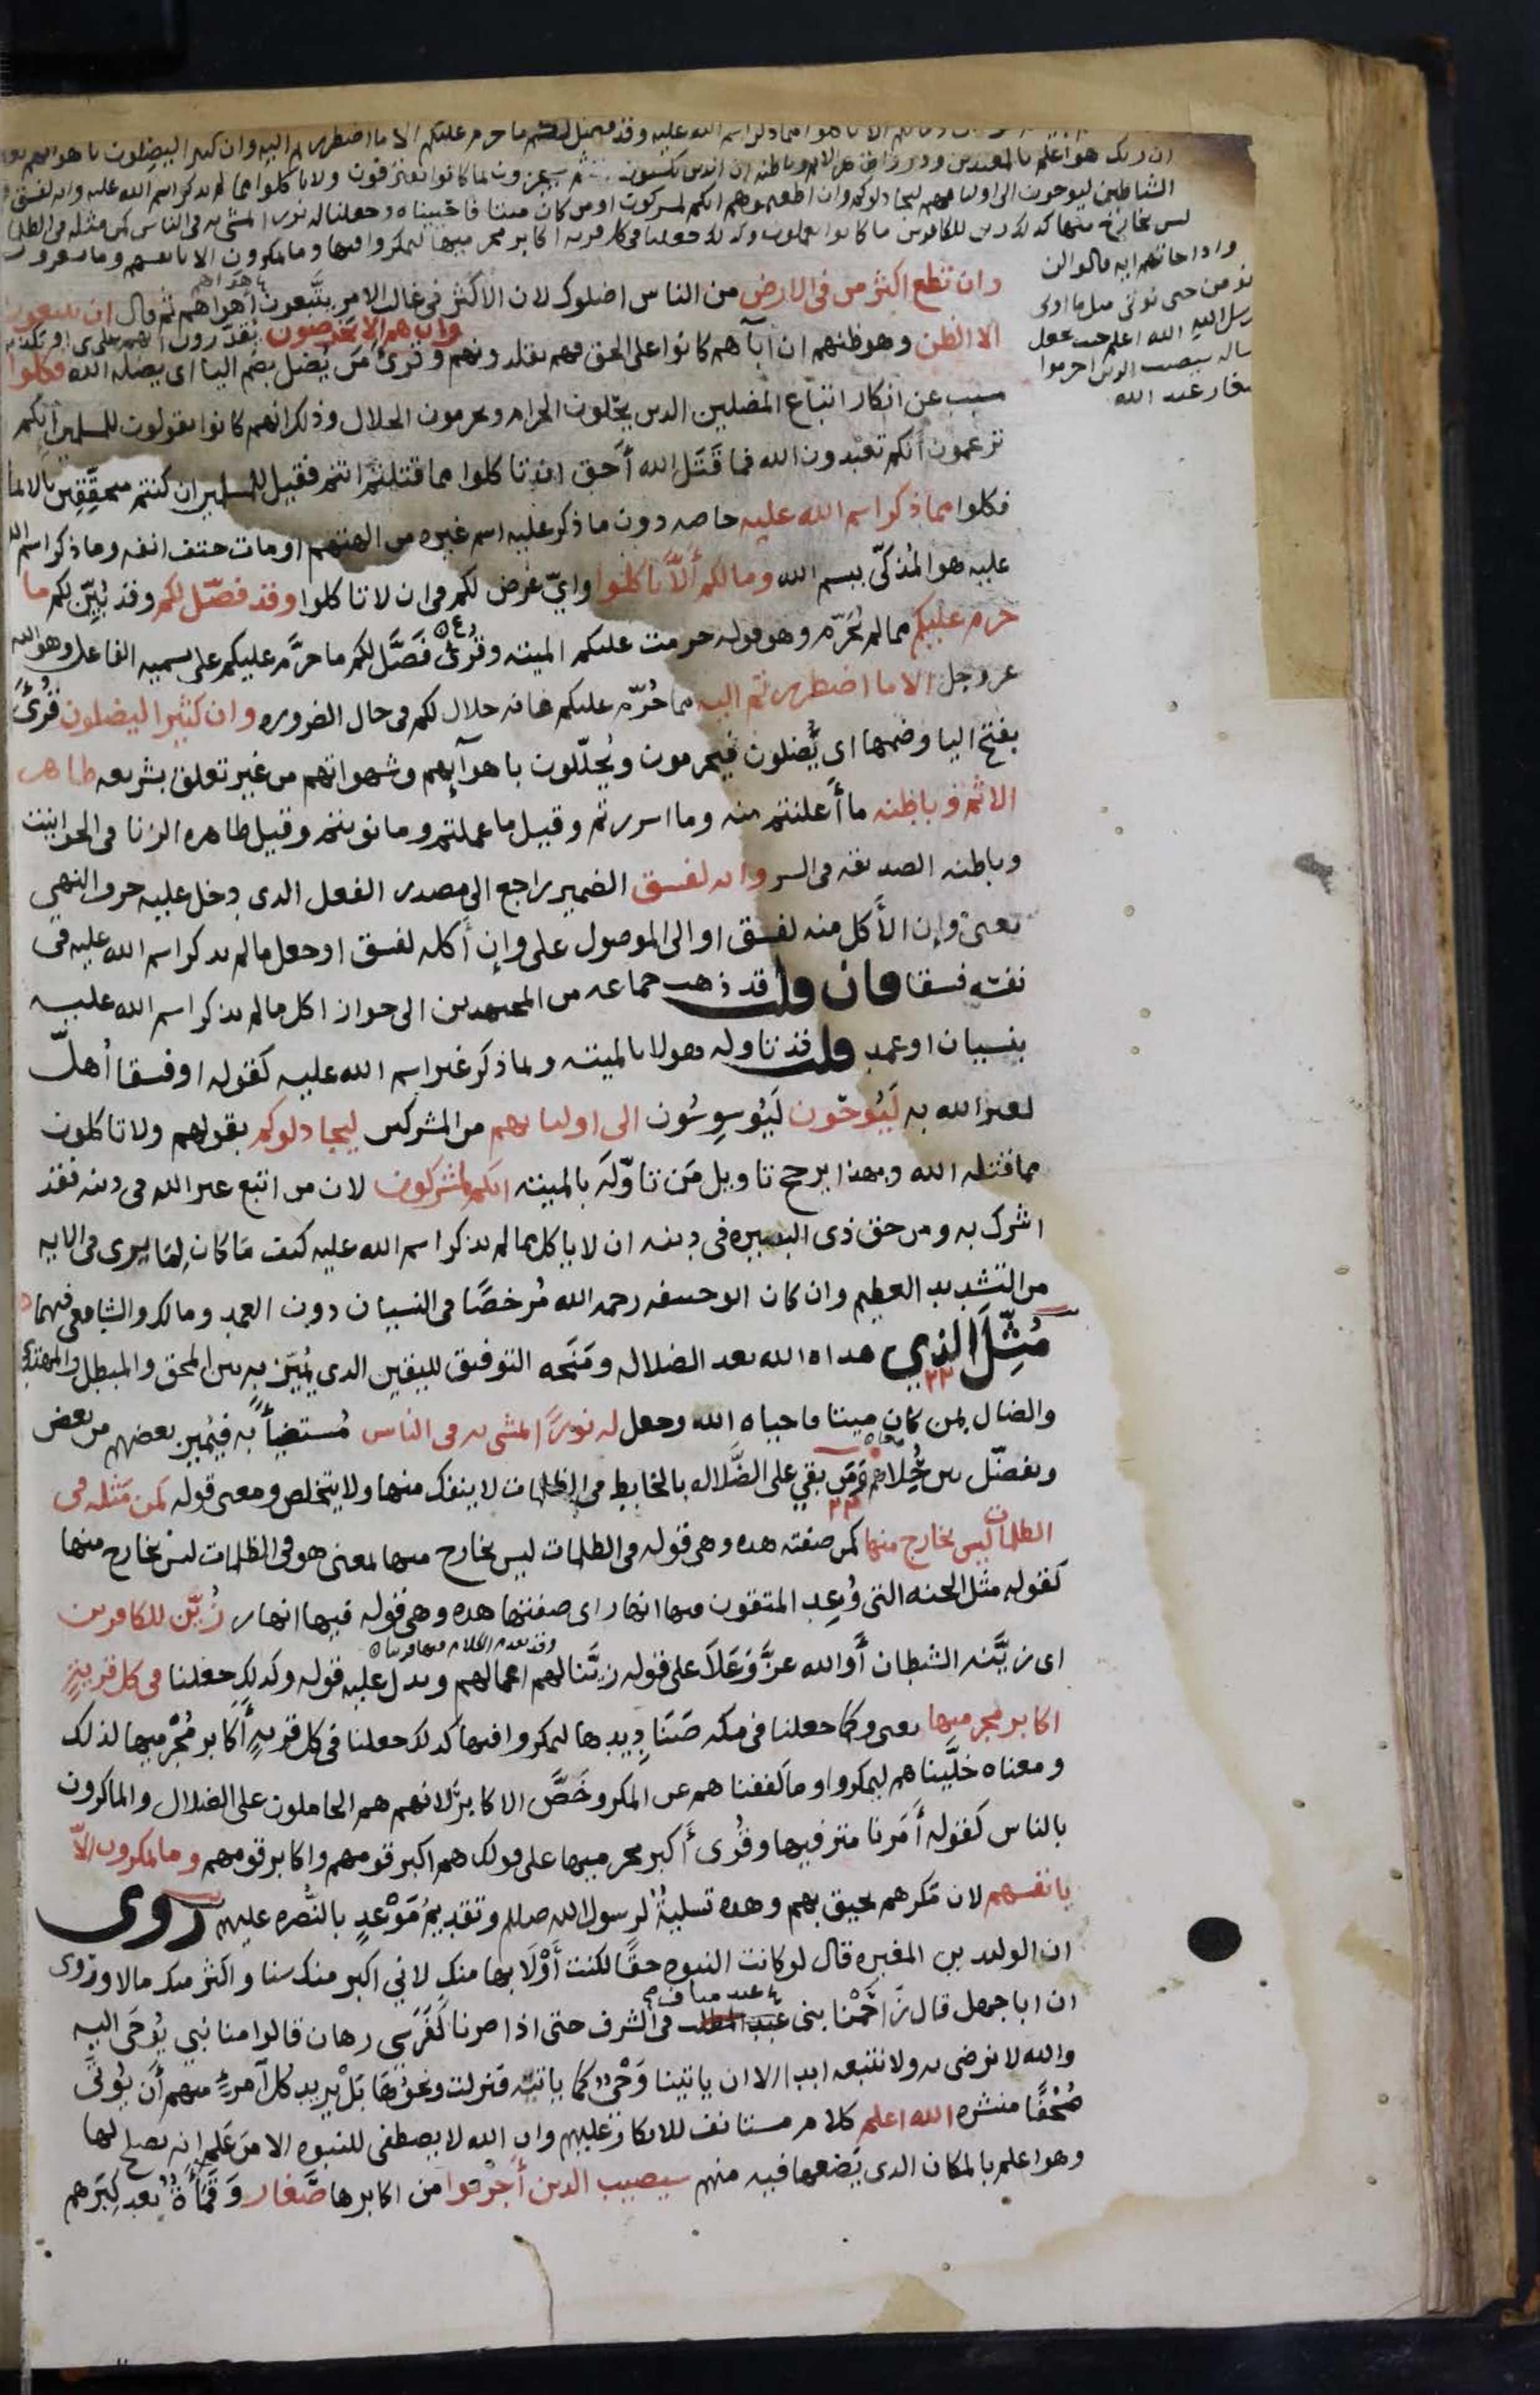 ان ربك هو اعلم بالمعتدين وذروا ظاهر الاثم وباطنه ان الذين يكسبون الاثم سيجزون بما كانوا يقترفون ولا تاكلوا مما لم يذكر اسم الله عليه وانه لفسق
الشياطين ليوحون الى اوليائهم ليجادلوكم وان اطعتموهم انكم لمشركون اومن كان ميتا فاحييناه وجعلنا له نورا يمشى به فى الناس كمن مثله فى الظلمات
ليس بخارج منها كذلك زين للكافرين ما كانوا يعملون وكذلك جعلنا فى كل قريه اكابر مجرميها ليمكروا فيها وما يمكرون الا بانفسهم وما يشعرون
واذا جاتهم ايه قالوا لن
نومن حتى نوتى مثل ما اوتى
رسل الله الله اعلم حيث يجعل
رسالته سيصيب الذين اجرموا
صغار عند الله
وان تطع اكثر من فى الارض من الناس اضلوك لان الاكثر فى غالب الامر يتبعون اهواهم ثم قال ان يتبعون
الا الظن وهو ظنهم ان آباهم كانوا على الحق فهم يقلدونهم وان هم الا يخرصون يقدرون انهم على شى وقرئ من يُضل بضم اليا اى يضله الله فكلوا
مسبب عن انكار اتباع المضلين الدين يحلّون الحرام ويحرمون الحلال وذلك انهم كانوا يقولون للمسلمين انكم
تزعمون أنكم تعبدون الله فما قَتَل الله أحق ان تاكلوا مما قتلتم انتم فقيل للمسلمين ان كنتم متحققين بالايمان
فكلوا مما ذكر اسم الله عليه خاصه دون ما ذكر عليه اسم غيره من الهتهم او مات حتف انفه وما ذكر اسم الله
عليه هو المُذكّى ببسم الله وما لكم ألاّ تاكلوا وايّ غرض لكم فى ان لا تاكلوا وقد فصّل لكم وقد بُيّن لكم ما
حرم عليكم مما لم يُحَرّم وهو قوله حرمت عليكم الميته وقرئ فَصَّل لكم ما حرَّم عليكم على تسميه الفاعل وهو الله
عز وجل الا ما اضطررتم اليه مما حُرّم عليكم فانه حلال لكم فى حال الضروره وان كثيرا ليضلون قُرئ
بفتح اليا وضمها اى يُضلون فيحرمون ويُحلّلون باهوآيهم وشهواتهم من غير تعلق بشريعه ظاهر
الاثم وباطنه ما أعلنتم منه وما اسررتم وقيل ما عملتم وما نويتم وقيل ظاهره الزنا فى الحوانيت
وباطنه الصديقه فى السر وانه لفسق الضمير راجع الى مصدر الفعل الدى دخل عليه حرف النهي
يعنى وإن الأكل منه لفسق او الى الموصول على وإن أكله لفسق او جعل ما لم يذكر اسم الله عليه فى
نفسه فسقا فان قلت قد ذهب جماعه من المجتهدين الى جواز اكل ما لم يذكر اسم الله عليه
بنسيان او عمد قلت قد تاوله هولا بالميته وبما ذكر غير اسم الله عليه كقوله او فسقا أهلّ
لغير الله به لَيُوحُون لَيُوسوِسُون الى اوليايهم من المشركين ليجادلوكم بقولهم ولا تاكلون
مما قتله الله وبهذا يرجح تاويل مَن تاوّلَه بالميته انكم لمشركون لان من اتبع غير الله فى دينه فقد
اشرك به ومن حق ذى البصيره فى دينه ان لا ياكل مما لم يذكر اسم الله عليه كيف ما كان لِمَا يرى فى الايه
من التشديد العظيم وان كان ابو حنيفه رحمه الله مُرخصًا فى النسيان دون العمد ومالك والشافعى فيهما
مُثِّلَ الذي هداه الله بعد الضلاله ومَنَحه التوفيق لليقين الدى يُميّز به بين المحق والمبطل والمهتدى
والضال بمن كان ميتا فاحياه الله وجعل له نورًا يمشى به فى الناس مُستضيأً به فيُميز بعضهم من بعض
ويفصّل بين حُلاهم ومَن بقي على الضَّلاله بالخابط فى الظلمات لا ينفك منها ولا يتخلص ومعنى قوله كمن مَثله فى
الظلمات ليس بخارج منها كمن صفته هده وهى قوله فى الظلمات ليس بخارج منها بمعنى هو فى الظلمات ليس بخارج منها
كقوله مثل الجنه التى وُعِد المتقون فيها انهار اى صفتها هده وهى قوله فيها انهار زُيّن للكافرين
اى زيَّنه الشيطان أو الله عزَّ وَعَلاَ على قوله زيّنا لهم اعمالهم ويدل عليه قوله وكذلك جعلنا فى كل قريةٍ
اكابر مجرميها يعنى وكما جعلنا فى مكه صَنَادِيدها ليمكروا فيها كدلك جعلنا فى كل قريةٍ أكابر مُجْرميها لذلك
ومعناه خلَّيناهم ليمكروا وما كففناهم عن المكر وخَصَّ الاكابر لانهم هم الحاملون على الضلال والماكرون
بالناس كقوله أَمَرنا مترفيها وقُرى أكبر مجرميها على قولك هم اكبر قومهم واكابر قومهم وما يمكرون إلاّ
بانفسهم لان مَكرهم يحيق بهم وهده تسليةٌ لرسول الله صلعم وتقديمُ مَوْعدٍ بالنُّصره عليهم رُوى
ان الوليد بن المغيره قال لو كانت النبوه حقًا لكنت أَوْلَا بها منك لاني اكبر منك سنا واكثر منك مالا ورُوى
ان ابا جهل قال زَاحَمْنا بنى عبد مناف فى الشرف حتى اذا صرنا كَفَرَسى رهان قالوا منا نبي يُوحَى اليه
والله لا نرضى به ولا نتبعه ابدا الا ان ياتينا وَحْىٌ كما ياتيه فنزلت ونحوُها بَلْ يريد كل آمرءٍ منهم أَن يُوتَى
صُحُفًا منشره الله اعلم كلام مستانف للانكار عليهم وان الله لا يصطفى للنبوه الا من عَلِم انه يصلح لها
وهو اعلم بالمكان الدى يَضعها فيه منهم سيصيب الدين أَجْرَموا من اكابرها صَغار وَقَمَأَةٌ بعد كِبَرهم